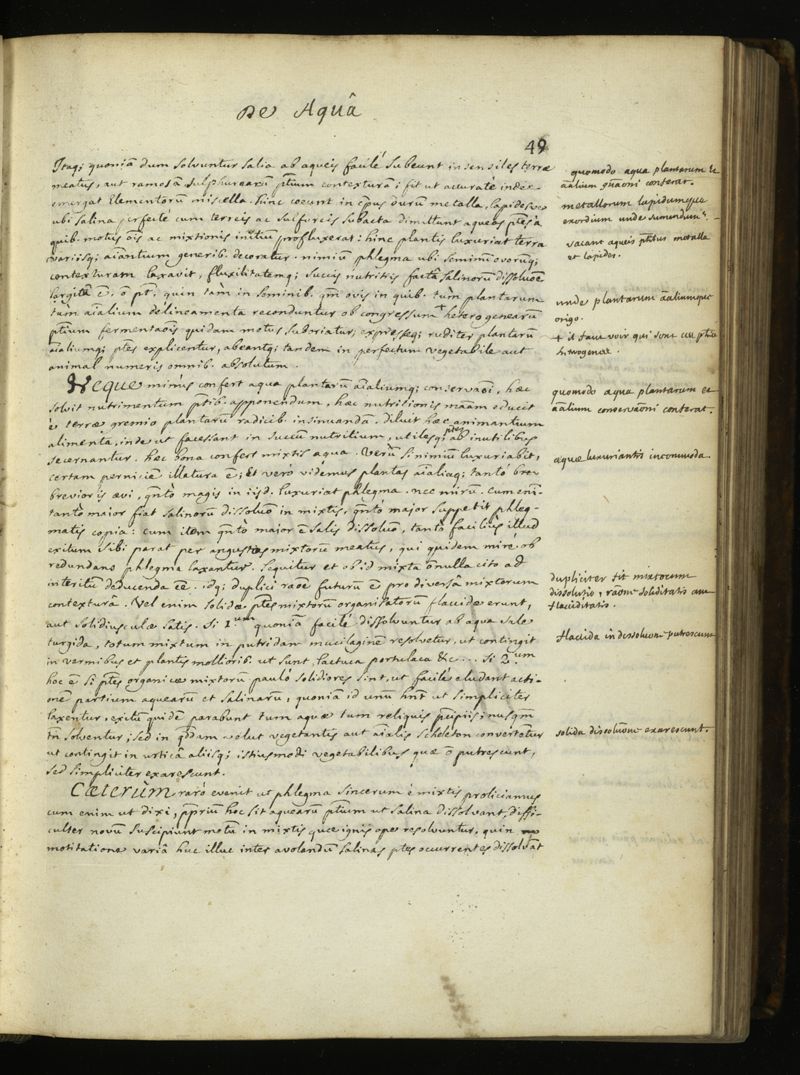 De Aquâ
49
Itaq; quoniā dum solvuntur salia ab aqueis facilè subeunt insensiles terræ
meatus, aut ramosā sulphurearū ptium contexturā; fit ut accuratè inde
emergat Elementorum miscella. hinc coeunt in cpus durum metalla, lapidesve
ubi salina perfectè cum terreis ac sulfureis subacta dimittunt aqueas ptes à
quib. motus ois ac mixtionis initium profluxerat: hinc plantis luxuriat terra
variisq; aīantium generib. decoratur. nimiū phlegma ubi seminū ovorūq;
contexturam laxavit, fluxilitatemq; succis nutritiis factâ salinorū dissoluōe
largita ē. ō pt. quin tàm in seminib. qm ovis in quib. tùm plantarum
tùm aīalium delineamenta reconduntur ob congressum + heterogenearū
ptium fermentaōis quidam motus suboriatur, expresseq; ruditer plantarū
aīaliumq; ptes explicentur, abeantq; tandem in perfectum vegetabile aut
animal numeris omnib. absolutum.
Neque minus confert aqua plantarū aīaliumq; conservaōi, hæc
solvit nutrimentum ptib. apponendum, hæc nutritionis maām educit
è terræ gremio plantarū radicib. insinuandā. Diluit hæc animantium
alimenta, inde ut facessant in succū nutritium, utilesq; ptes ab inutilibus
secernantur. hæc bona confert mixtis aqua. Verū si nimiū luxuriabit,
certam perniciē illatura ē; Et verò videmus plantas aīaliaq; tantò
brevioris ævi, qntò magis in iisd. luxuriat phlegma. nec mirū. Cum enī
tantò maior fiat salinorū dissoluō in mixtis, qntò major suppetit phleg-
matis copia: cum item qntò maior ē salis dissoluō, tantò faciliùs illud
exitum sibi parat per angustos mixtorū meatus, qui quidem mirè ob
redundans phlegma laxantur. Sequitur et ob id mixta ōnulla cito ad
interitū deducenda ēe. idq; duplici raōe futurū ē pro diversâ mixtorum
contexturâ. Vel enim solidæ ptes mixtorū organisatorū flaccidæ erunt,
aut solidiusculæ satis. Si 1um quoniā facilè dissolvuntur ab aqua sale
turgida, totum mixtum in putridam mucilaginē resolvetur, ut contingit
in vermibus et plantis mollioribs. ut sunt lactuca portulaca &c... Si 2um
hoc ē si ptes organicæ mixtorū paulò solidiores sint, ut facile eludant acti-
onē partium aquearū et salinarū, quoniā id unū hnt ut simpliciter
laxentur, exitū quidē parabunt tum aquæ tum reliquis pcipiis; nusqm
tn solventur, sed in qdam velut vegetantis aut aīalis scheleton convertetur
ut contingit in urticâ aliisq; istiusmodi vegetabilibus quæ ō putrescunt,
sed simpliciter exarescunt.
Cæterùm rarò evenit ut phlegma sincerum è mixtis proliciamus
cum enim ut dixi, ppriū hoc sit aquearū ptium ut salina dissolvant, diffi-
culter novū suscipiunt motū in mixtis quæ ignis ope resolvuntur, quin
motitatione variâ huc illuc inter avolandū salinas ptes occurrentes dissolvāt
quomodo aqua plantarum et
aālium conferat.
metallorum lapidumque
exordium unde sumendum.
vacant aqueis ptibus metalla
et lapides.
unde plantarum aāliumque
origo.
+ il faut voir qui sont ces ptes
heterogeneæ.
quomodo aqua plantarum et
aālium conservaōni conferat.
aquæ luxuriantis incommoda.
dupliciter fit mixtorum
dissolutio, raōne soliditatis aut
flacciditatis.
flaccida in dissoluōne putrescunt
solida dissoluōne exarescunt.